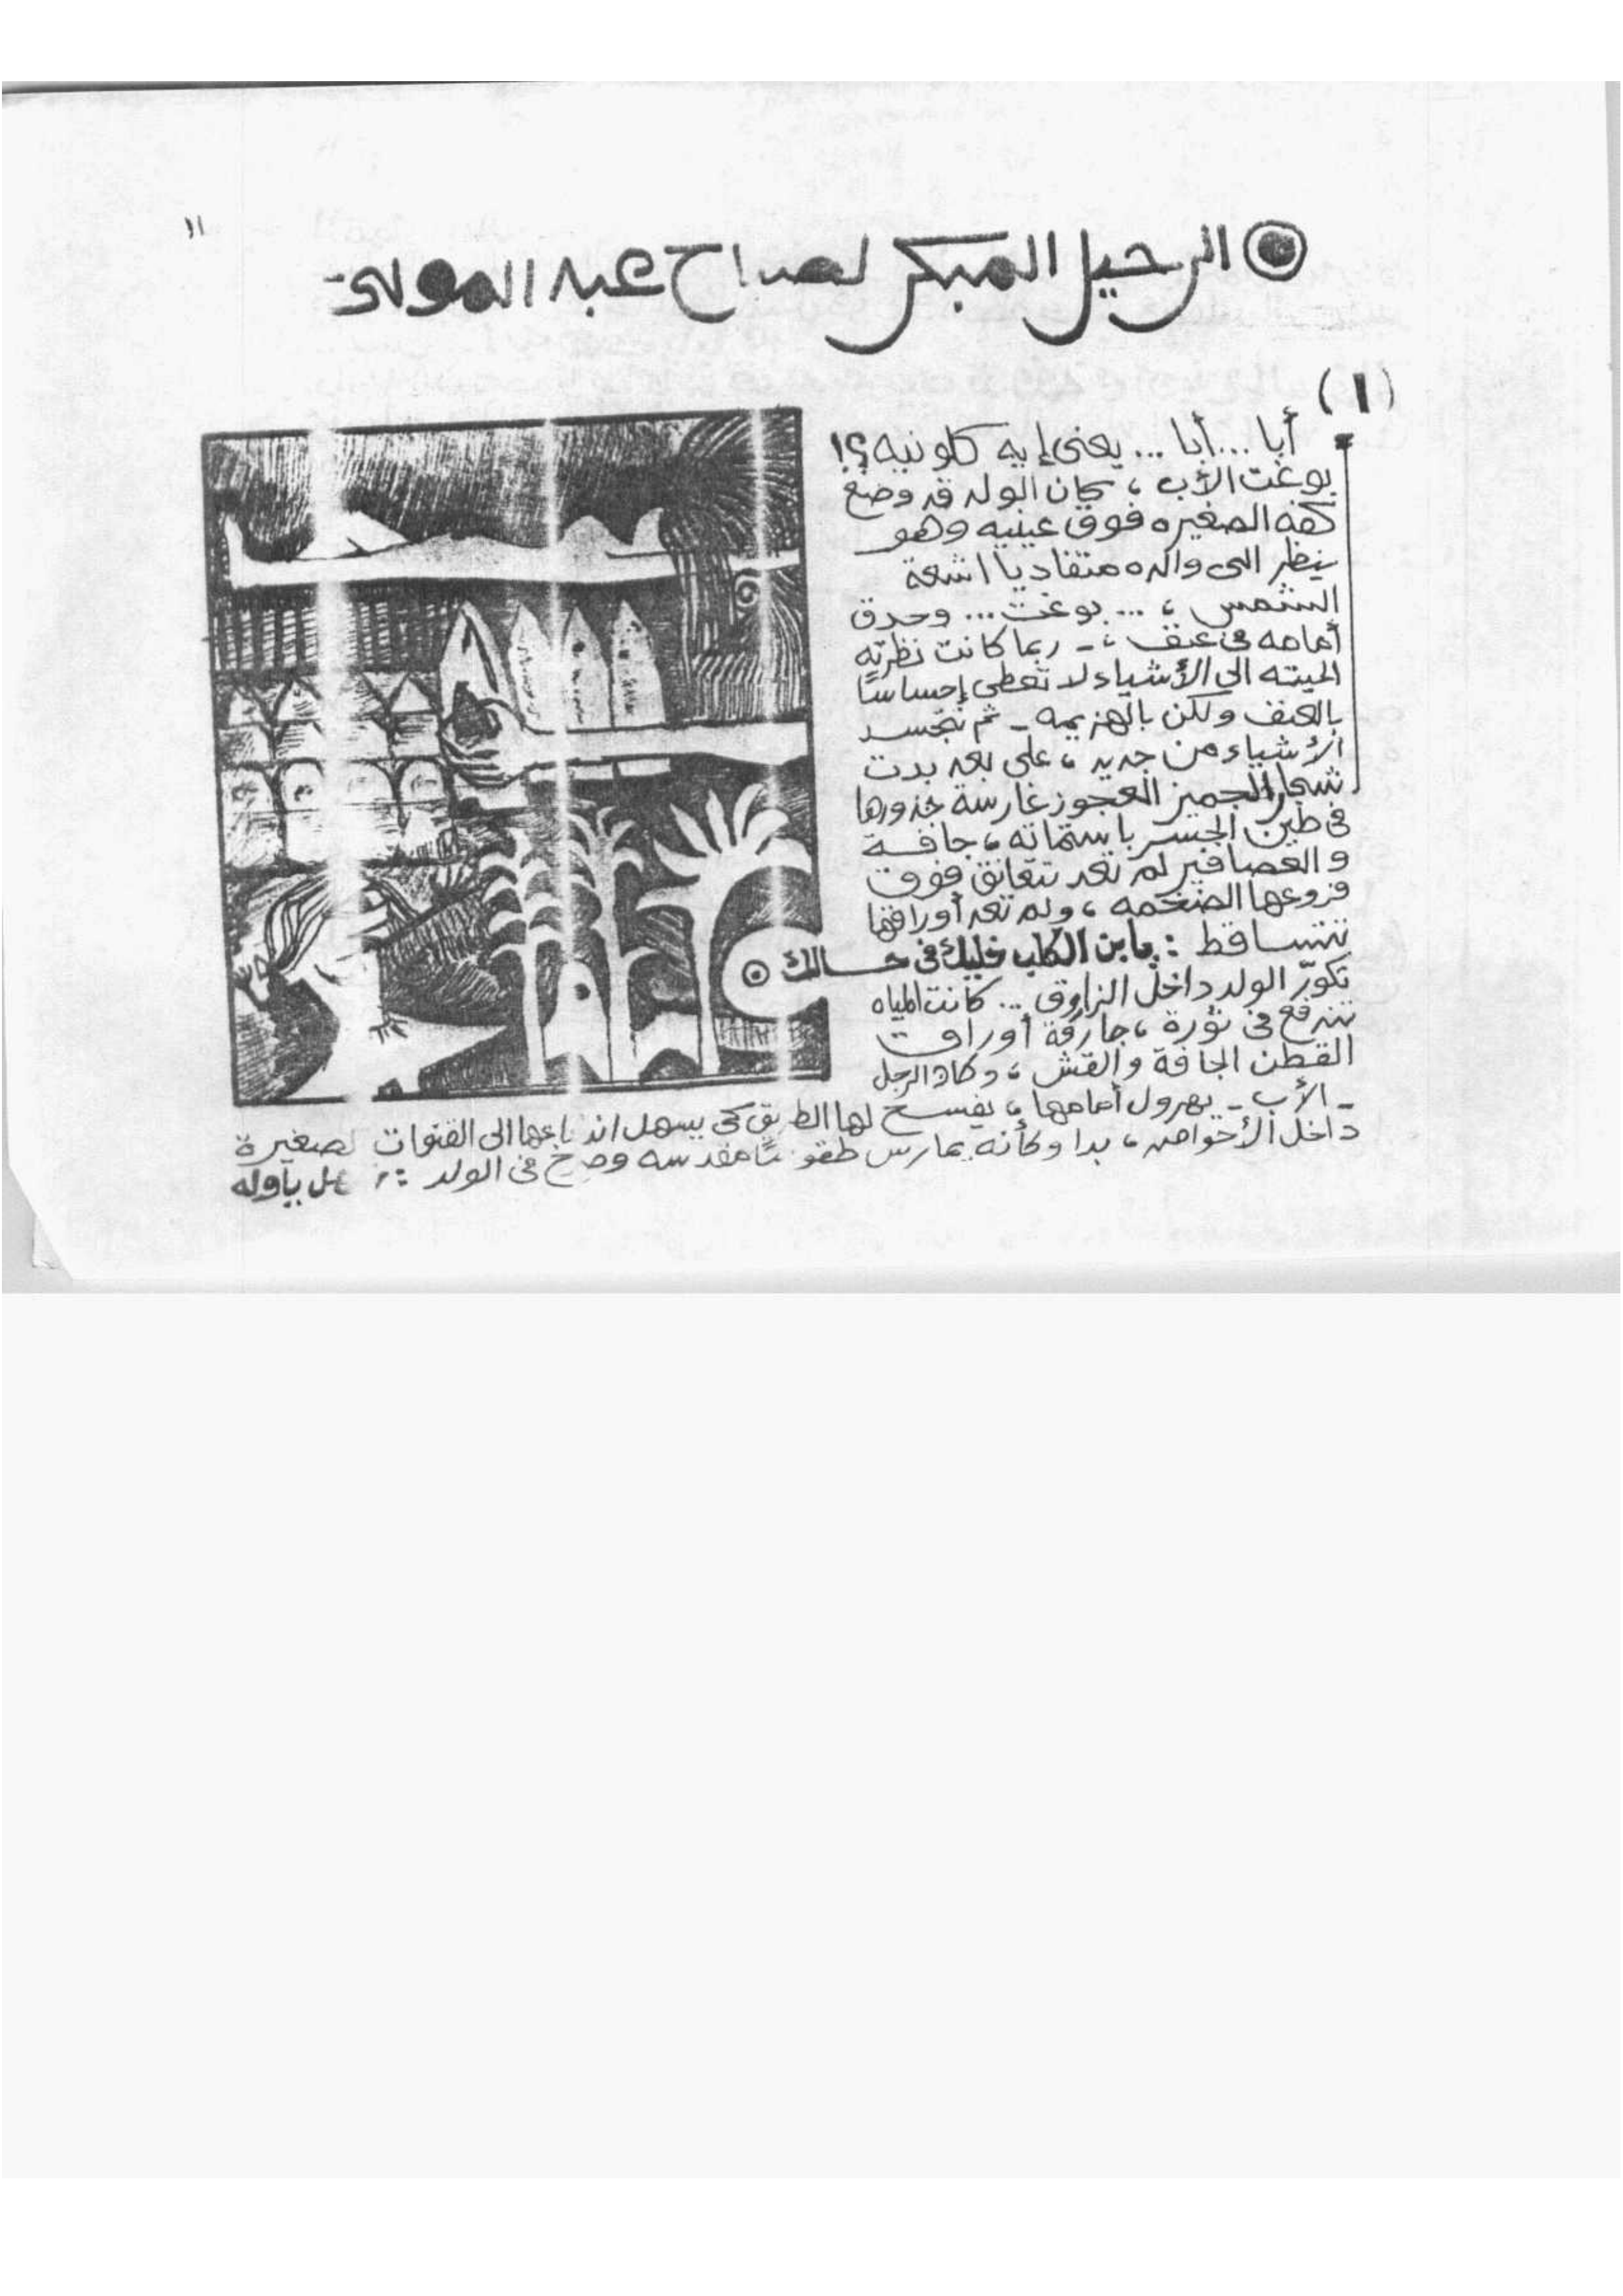 ١١
الرحيل المبكر لصداح عبد المولى
(١)
أبا ... أبا ... يعنى إيه كلونيه ؟!
بوغت الأب ، كان الولد قد وضع
كفه الصغيره فوق عينيه وهو
ينظر الى والده متفاديا اشعة
الشمس ، ... بوغت ... وحدق
أمامه فى عنف ، - ربما كانت نظرته
الميته الى الأشياء لا تعطى إحساسًا
بالعنف ولكن بالهزيمه - ثم تتجسد
الأشياء من جديد ، على بعد بدت
شجار الجميز العجوز غارسة جذورها
فى طين الجسر باستماته ، جافة
و العصافير لم تعد تتعانق فوق
فروعها الضخمه ، ولم تعد أوراقها
تتساقط : يابن الكلب خليك فى حالك
تكوّر الولد داخل الزاروق ... كانت المياه
تندفع فى ثورة ، جارفة أوراق
القطن الجافة والقش ، وكان الرجل
- الأب - يهرول أمامها ، يفسح لها الطريق كى يسهل اندفاعها الى القنوات الصغيرة
داخل الأحواض ، بدا وكأنه يمارس طقوسًا مقدسه وصرخ فى الولد : ياوله